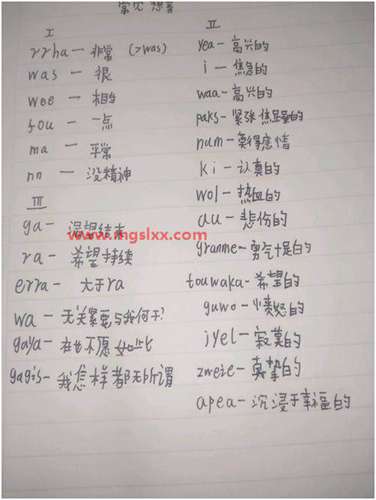 常见想音
I
rrha — 非常 (>was)
was — 很
wee — 相当
fou — 一点
ma — 平常
nn — 没精神
III
ga — 渴望结束
ra — 希望持续
erra — 大于ra
wa — 无关紧要与我何干?
gaya — 在也不愿如此
gagis — 我怎样都无所谓
II
yea — 高兴的
i — 焦急的
waa — 高兴的
paks — 紧张焦虑的
num — 莫得感情
ki — 认真的
wol — 热血的
uu — 悲伤的
granme — 勇气十足的
touwaka — 希望的
guwo — 愤怒的
jyel — 寂寞的
zweie — 真挚的
apea — 沉浸于幸福的
www.mgslxx.com